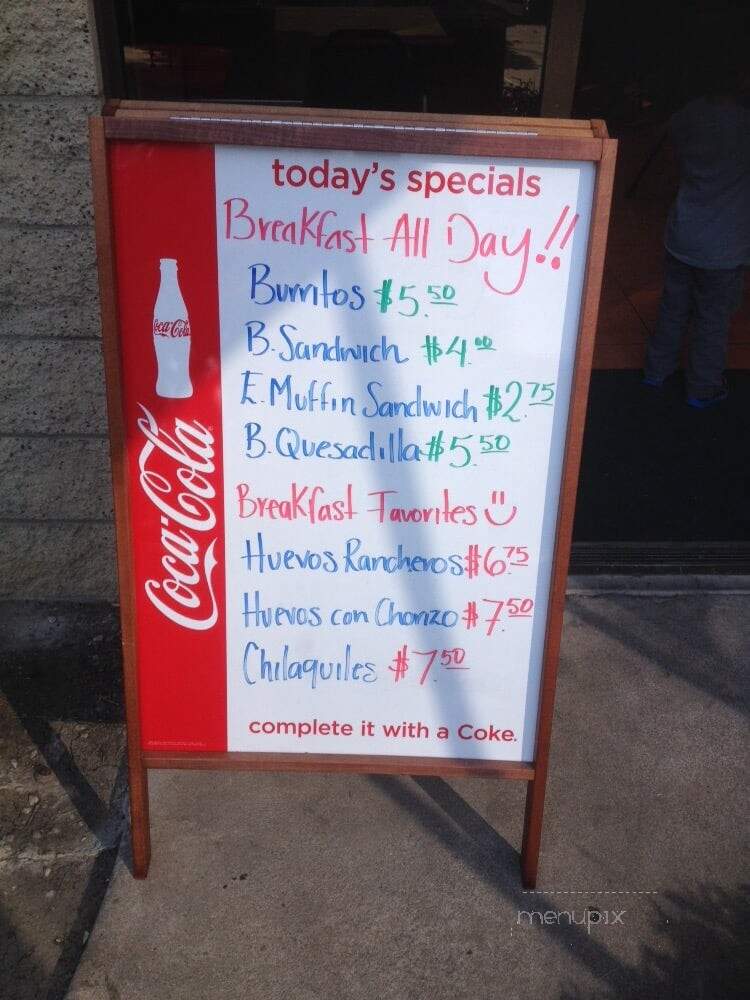 today's specials
Breakfast All Day!!
Burritos $5.50
B. Sandwich $4.00
E. Muffin Sandwich $2.75
B. Quesadilla $5.50
Breakfast Favorites
Huevos Rancheros $6.75
Huevos con Chorizo $7.50
Chilaquiles $7.50
complete it with a Coke.
Coca-Cola
Coca-Cola
menupix